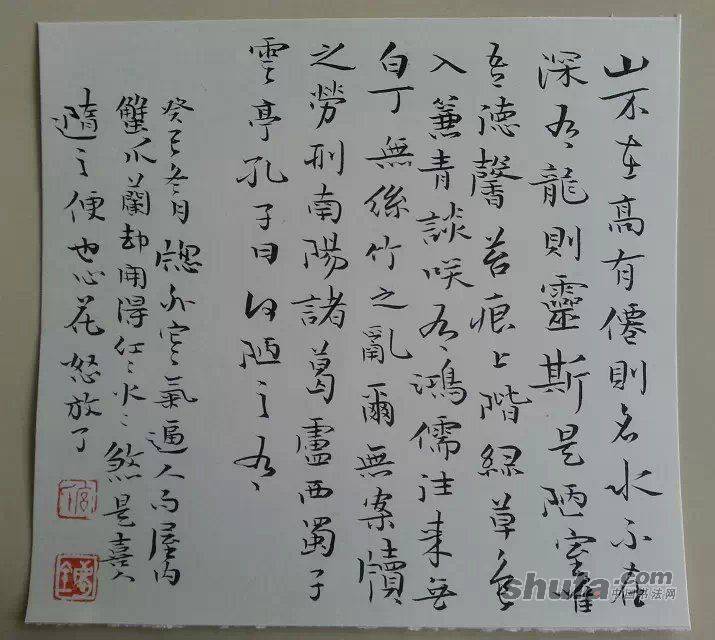 山不在高有僊則名水不在
深有龍則靈斯是陋室惟
吾德馨苔痕上階綠草色
入簾青談咲有鴻儒往來無
白丁無絲竹之亂爾無案牘
之勞形南陽諸葛廬西蜀子
雲亭孔子曰何陋之有
癸巳冬月窗外寒氣逼人而屋內
蟹爪蘭却開得紅火火煞是喜人
隨之便也心花怒放了
shufa.com
中国书法网